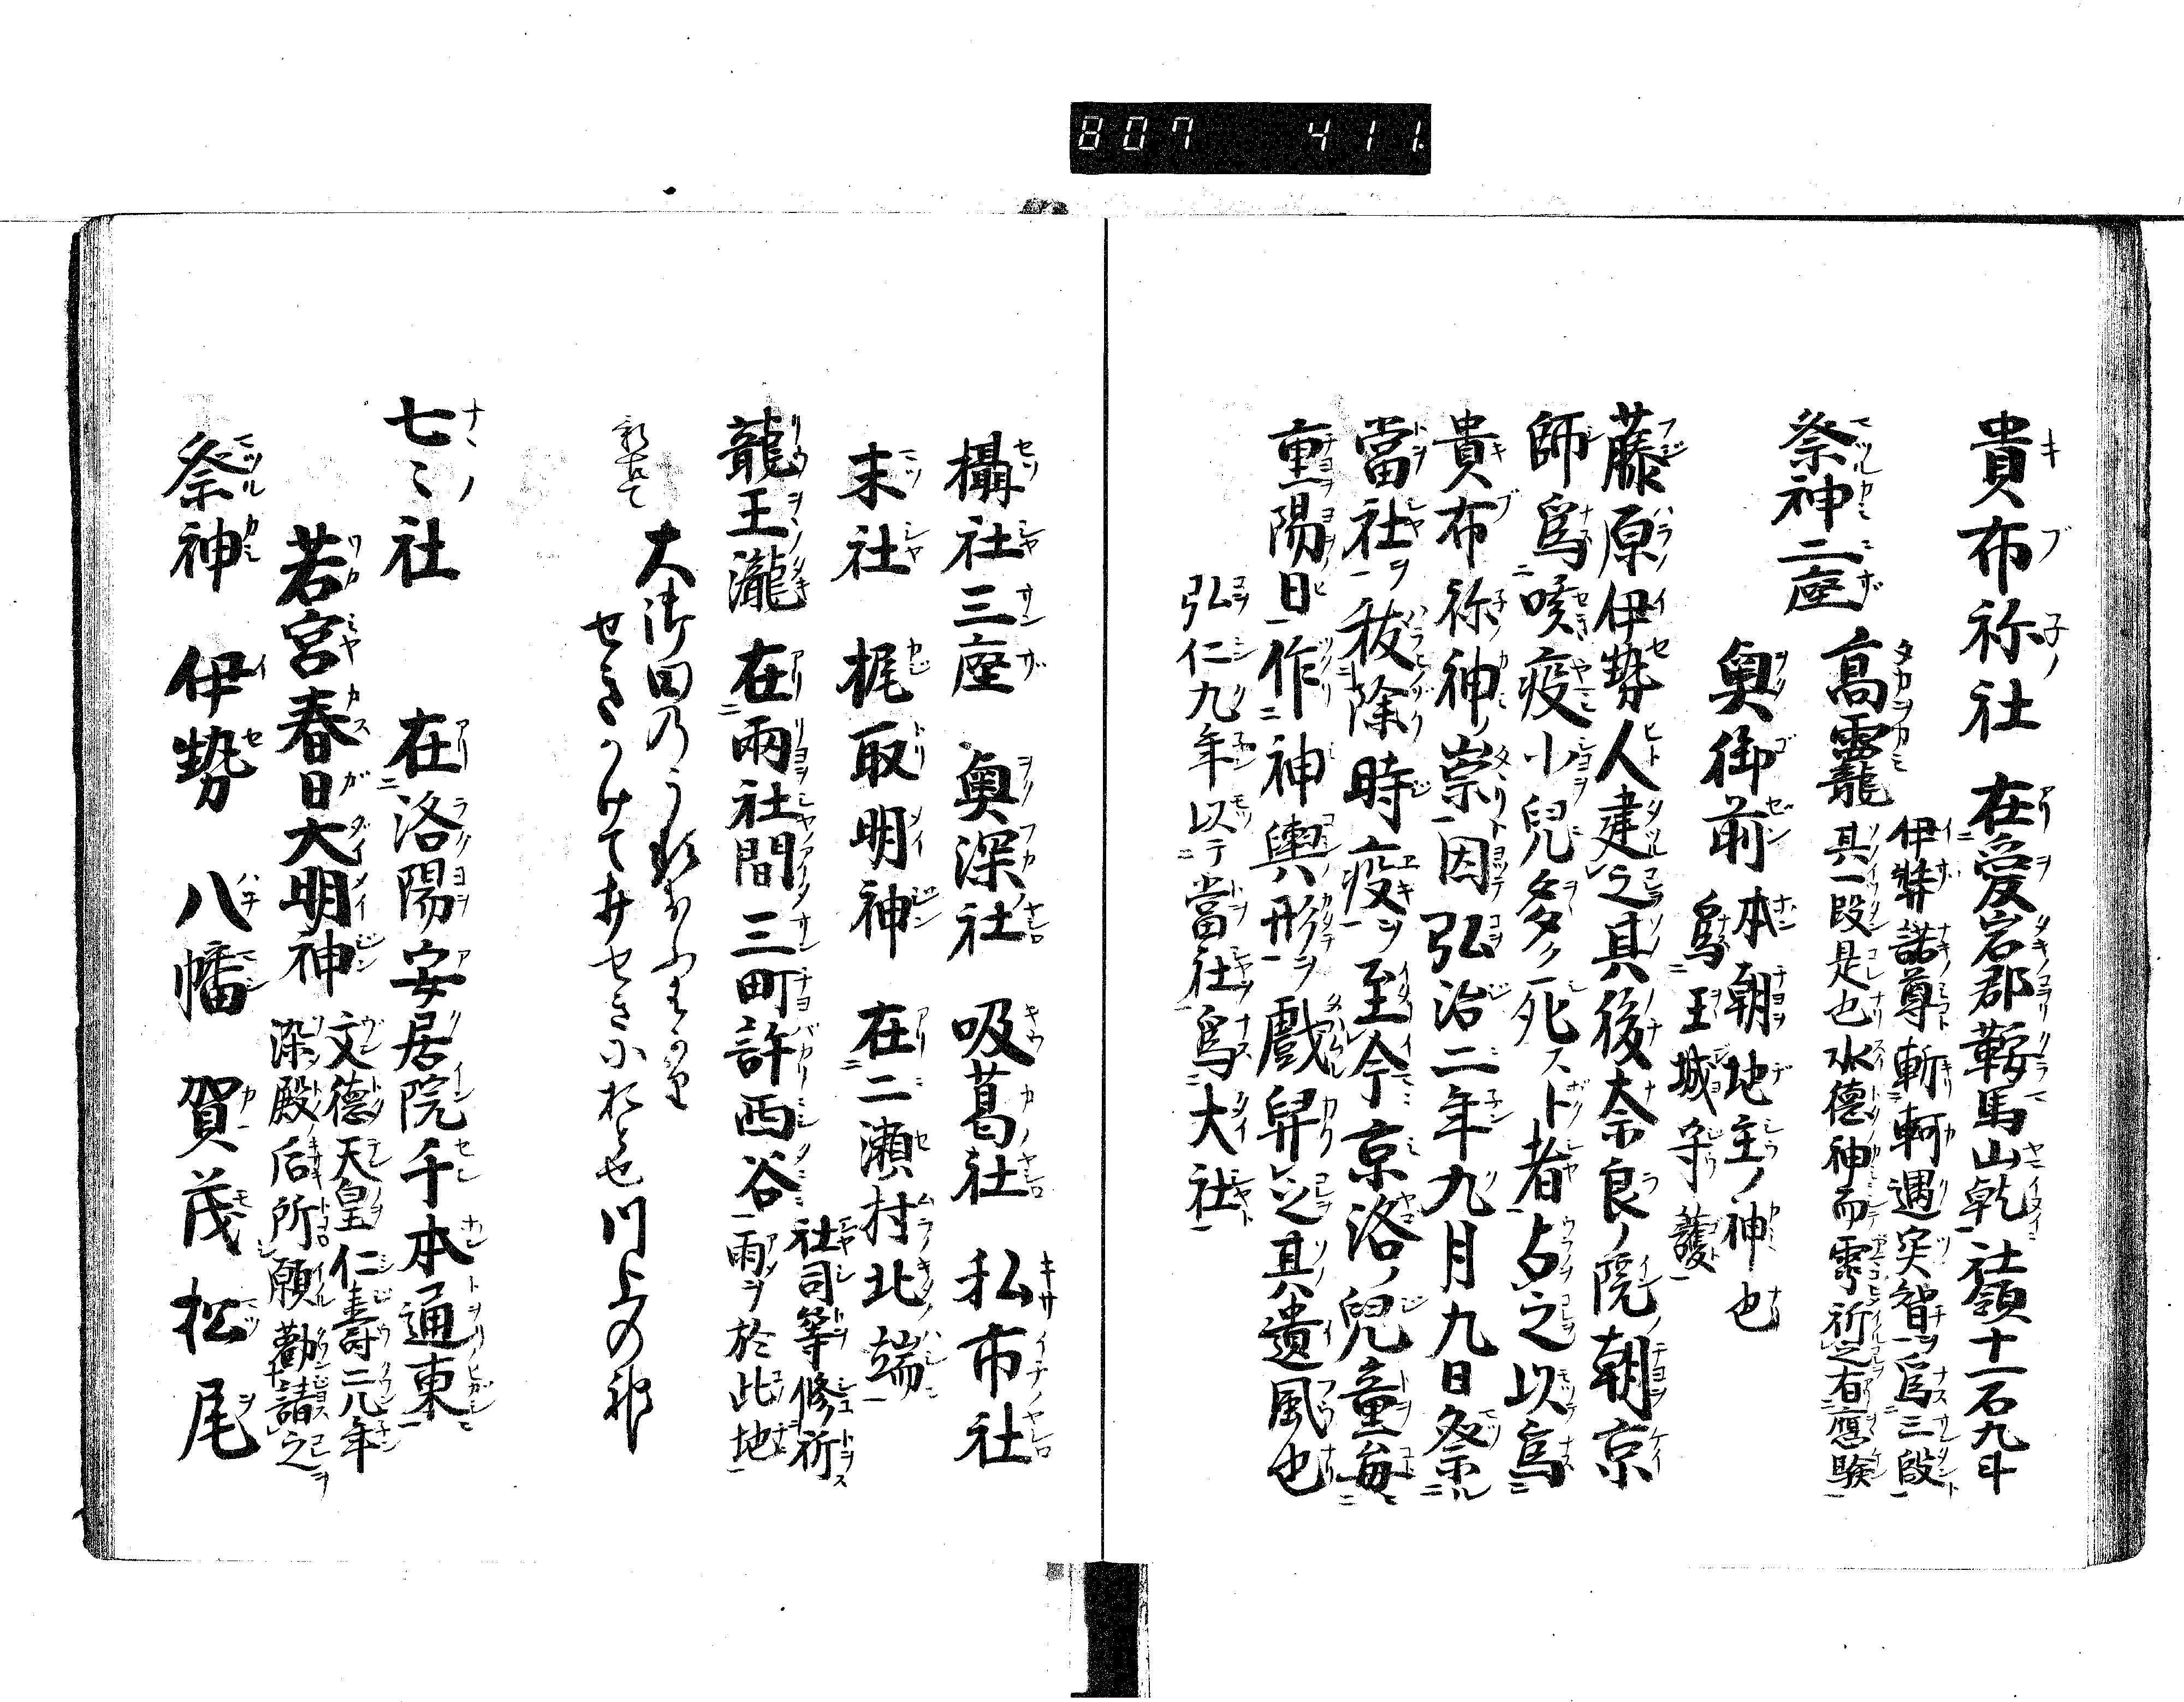 807 411
貴布祢社 在愛宕郡鞍馬山乾社領十一石九斗
祭神二座 高龗
伊弉諾尊斬軻遇突智為三段
其一段是也水徳神而雩祈之有應験
奥御前 本朝地主ノ神也
為王城守護
藤原伊勢人建之其後奈良ノ院朝京
師為咳疫小兒多ク死スト者占之以為
貴布祢神ノ崇因弘治二年九月九日祭ル
當社ヲ秡除時疫ヲ至今京洛ノ兒童毎
重陽日作神輿形ヲ戯舁之其遺風也
弘仁九年以テ當社為大社
攝社三座 奥深社 吸葛社 私市社
末社 梶取明神 在二瀬村北端
龍王瀧 在兩社間三町許西谷
社司等修祈
雨ヲ於此地
大御田のうるほふ
せきかけて井せきにおとせ川上の神
七ヽ社 在洛陽安居院千本通東
若宮春日大明神 文徳天皇仁壽二元年
染殿后所願勸請之
祭神 伊勢 八幡 賀茂 松尾